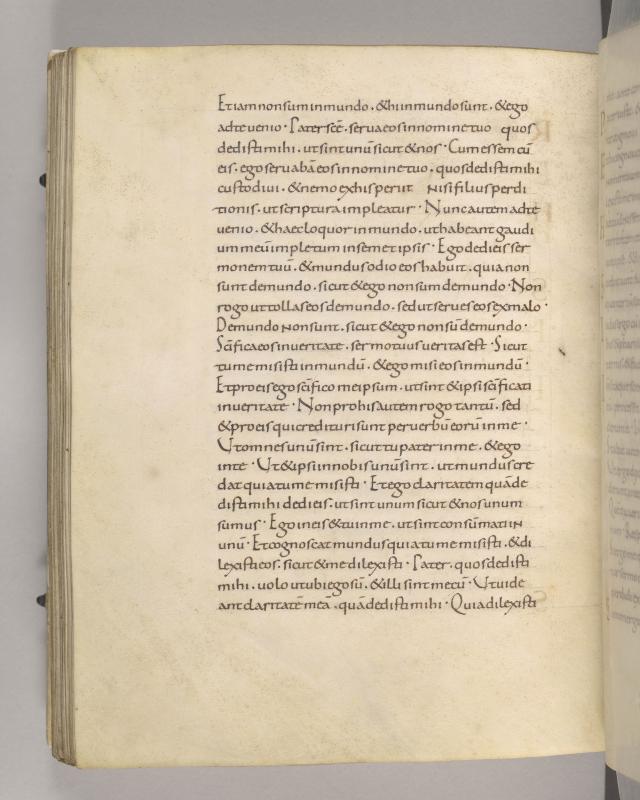 Et iam non sum in mundo . & hi in mundo sunt . & ego
ad te venio · Pater sc̄e . serva eos in nomine tuo quos
dedisti mihi . ut sint unū sicut & nos · Cum essem cū
eis . ego servabā eos in nomine tuo . quos dedisti mihi
custodivi . & nemo ex his periit nisi filius perdi
tionis . ut scriptura impleatur · Nunc autem ad te
venio . & haec loquor in mundo . ut habeant gaudi
um meū impletum in semet ipsis · Ego dedi eis ser
monem tuū . & mundus odio eos habuit . quia non
sunt de mundo . sicut & ego non sum de mundo · Non
rogo ut tollas eos de mundo . sed ut serves eos ex malo ·
De mundo non sunt . sicut & ego non sū de mundo ·
Sc̄ifica eos in veritate . sermo tuus veritas est · Sicut
tu me misisti in mundū . & ego misi eos in mundū ·
Et pro eis ego sc̄ifico me ipsum . ut sint & ipsi sc̄ificati
in veritate · Non pro his autem rogo tantū . sed
& pro eis qui credituri sunt per verbū eorū in me ·
Ut omnes unū sint . sicut tu pater in me . & ego
in te · Ut & ipsi in nobis unū sint . ut mundus cre
dat quia tu me misisti · Et ego claritatem quā de
disti mihi dedi eis . ut sint unum sicut & nos unum
sumus · Ego in eis & tu in me . ut sint consūmati in
unū · Et cognoscat mundus quia tu me misisti . & di
lexisti eos . sicut & me dilexisti · Pater . quos dedisti
mihi . volo ut ubi ego sū . & illi sint mecū · Ut vide
ant claritatē meā . quā dedisti mihi · Quia dilexisti